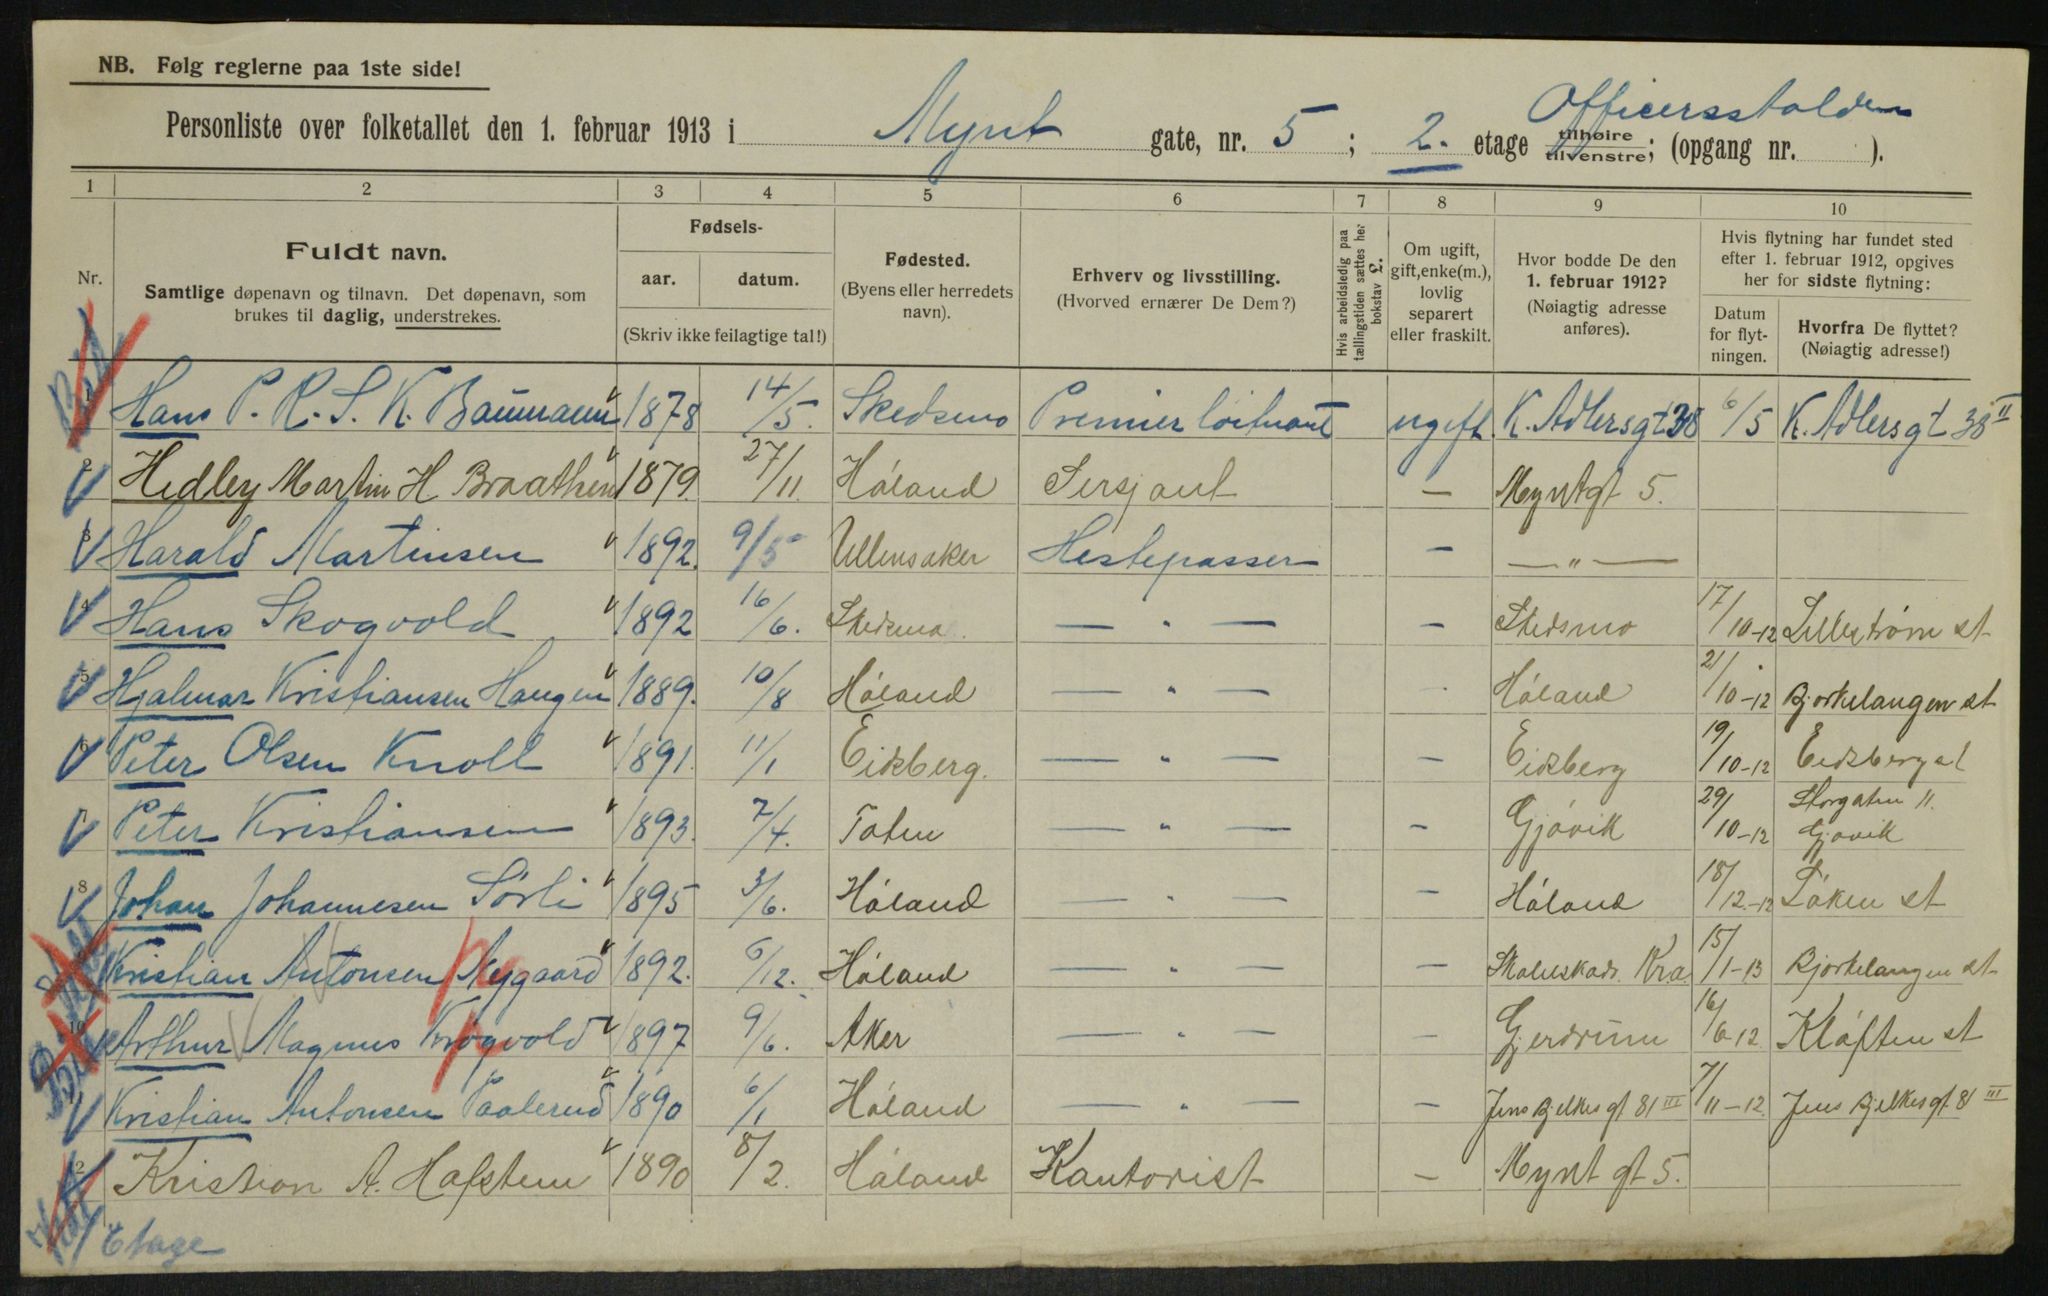 NB. Følg reglerne paa 1ste side!
Officersstalden
Personliste over folketallet den 1. februar 1913 i Mynt gate, nr. 5; 2. etage tilhøire tilvenstre; (opgang nr. ).
1 2 3 4 5 6 7 8 9 10
Nr.
Fuldt navn.
Samtlige døpenavn og tilnavn. Det døpenavn, som
brukes til daglig, understrekes.
Fødsels-
aar. datum.
(Skriv ikke feilagtige tal!)
Fødested.
(Byens eller herredets
navn).
Erhverv og livsstilling.
(Hvorved ernærer De Dem?)
Hvis arbeidsledig paa
tællingstiden sættes her
bokstav L.
Om ugift,
gift, enke(m.),
lovlig
separert
eller fraskilt.
Hvor bodde De den
1. februar 1912?
(Nøiagtig adresse
anføres).
Hvis flytning har fundet sted
efter 1. februar 1912, opgives
her for sidste flytning:
Datum
for flyt-
ningen.
Hvorfra De flyttet?
(Nøiagtig adresse!)
1 Hans P. R. S. K. Baumann 1878 14/5. Skedsmo Premierløitnant ugift. K. Adlersgt 38 6/5 K. Adlersgt 38 II
2 Hedley Martin H Braathen 1879. 27/11. Høland Sersjant — Myntgt 5.
3 Harald Martinsen 1892. 9/5 Ullensaker Hestepasser — — " —
4 Hans Skogvold 1892 16/6. Skedsmo. — " — — Skedsmo 17/10-12 Lillestrøm st
5 Hjalmar Kristiansen Haugen 1889. 10/8 Høland — " — - Høland 21/10-12 Bjørkelangen st
6 Peter Olsen Knoll 1891. 11/1 Eidsberg. — " — — Eidsberg 19/10-12 Eidsberg st
7 Peter Kristiansen 1893. 7/4. Toten — " — — Gjøvik 29/10-12 Storgaten 11. Gjøvik
8 Johan Johannesen Sørli 1895 3/6. Høland — " — — Høland 18/12-12 Løken st
Kristian Antonsen Nygaard 1892. 6/12. Høland — " — — Kra. 15/1-13 Bjørkelangen st
10 Arthur Magnus Krogvold 1897 9/6. Aker — " — — Gjerdrum 16/6-12 Kløften st
Kristian Antonsen Paalerud 1890 6/1 Høland — " — — Jens Bjelkes gt 81 III 7/11-12. Jens Bjelkes gt. 81 III
12 Kristian A. Hafsten 1890 8/2. Høland Kantorist — Mynt gt 5.
Etage